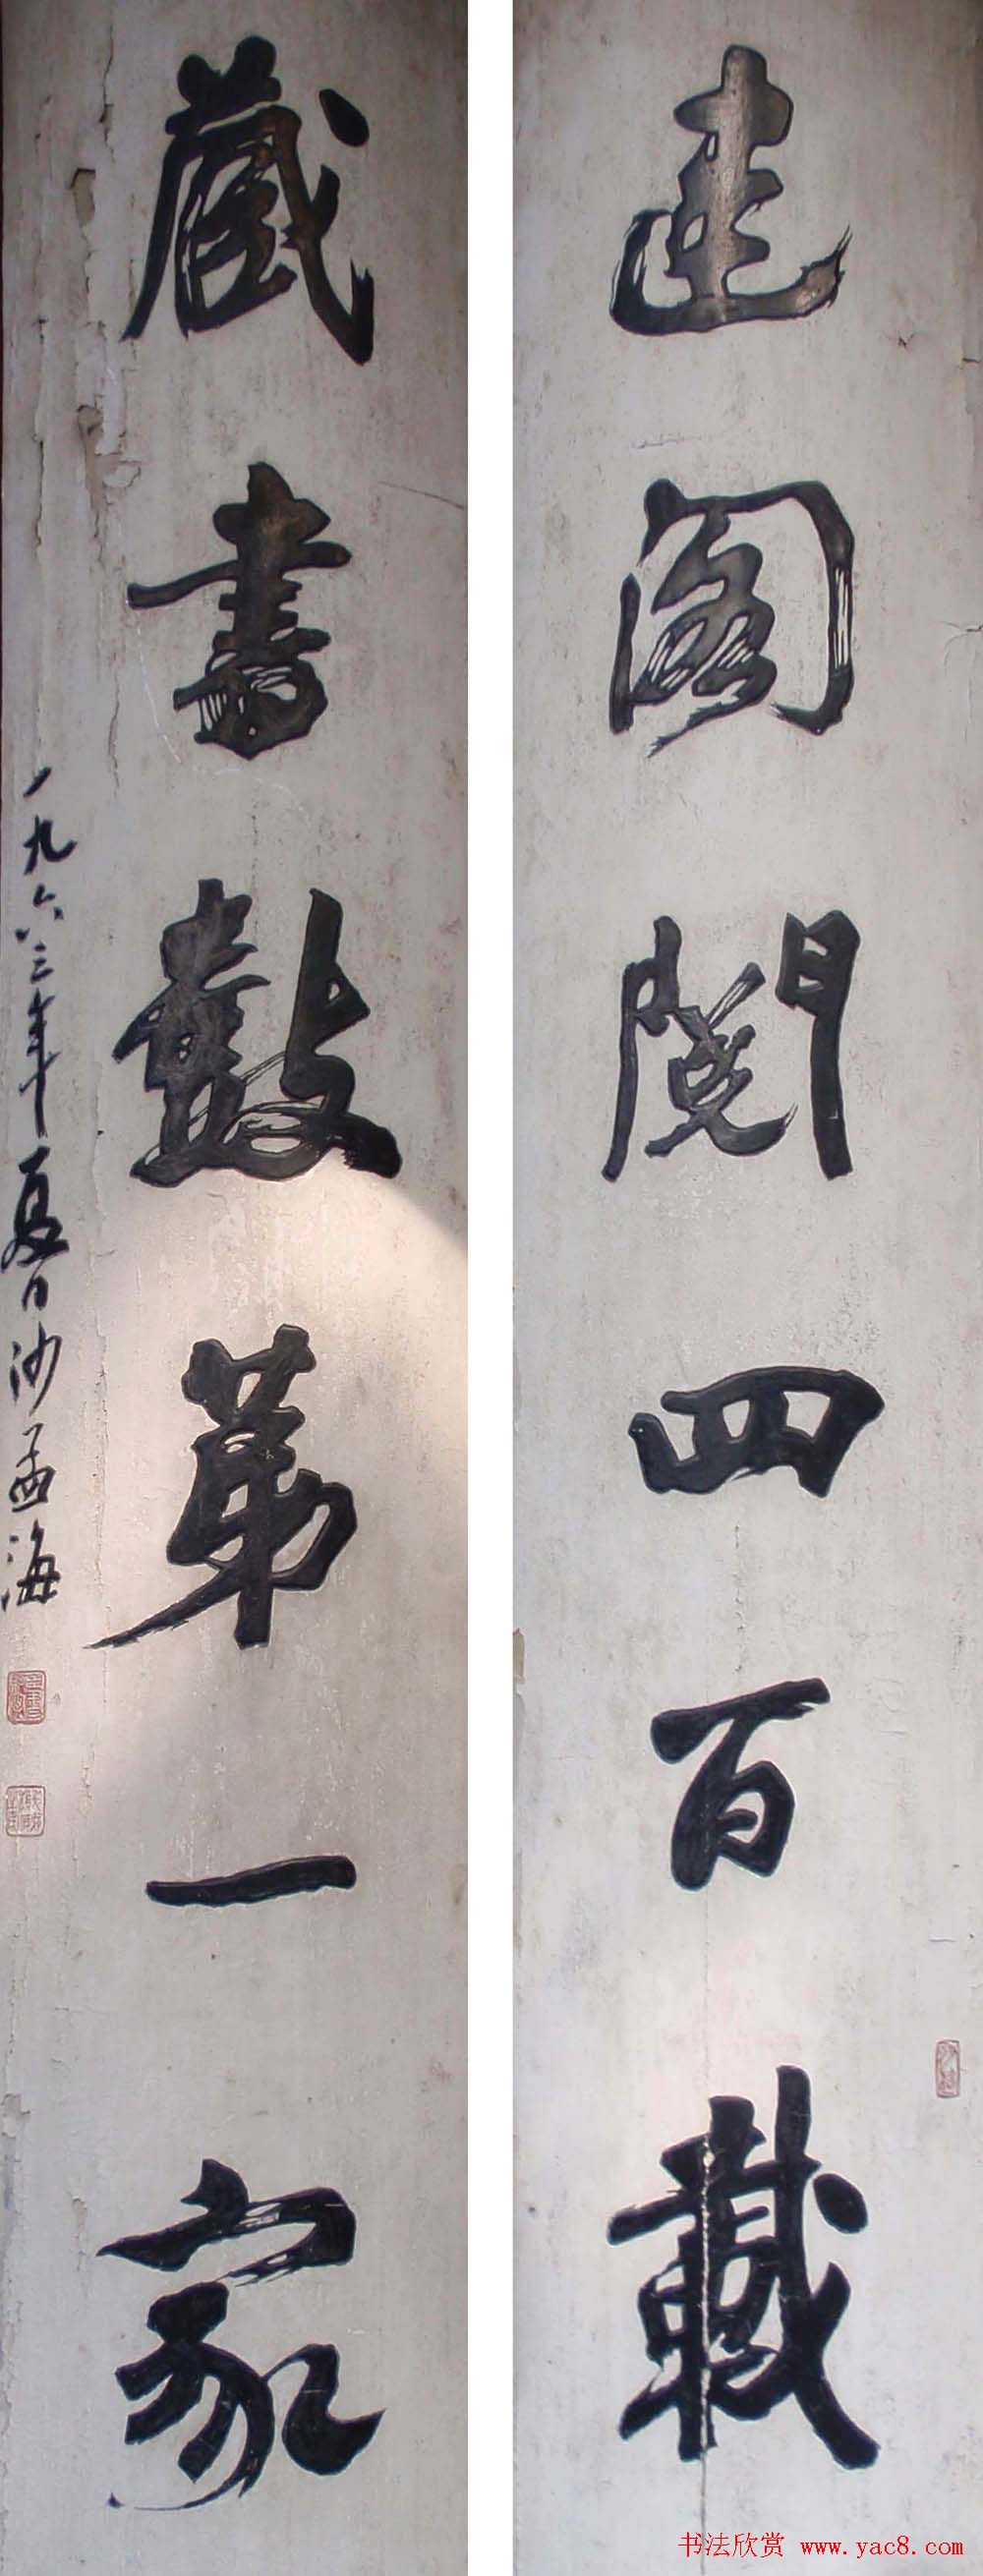 建阁阅四百载
藏書數第一家
一九六三年夏日沙孟海
书法欣赏 www.yac8.com